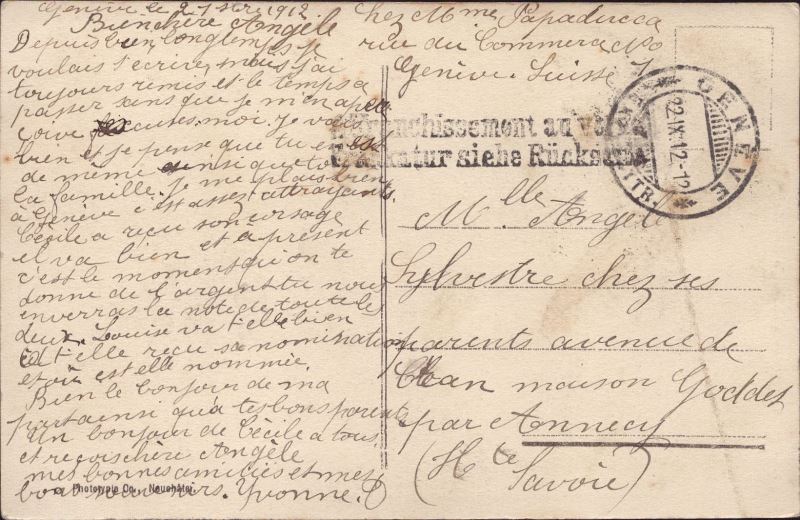 Genève le 21 7bre 1912
Bien chère Angèle
Depuis bien longtemps je
voulais t'ecrire, mais j'ai
toujours remis et le temps a
passer sans que je m'en aper
coive excuses moi je vais
bien et je pense que tu es
de même ainsi que toute
la famille. je me plais bien
à Genève c'est assez attrayant.
Cécile a reçu son corsage
el va bien et a présent
c'est le moment qu'on te
donne de l'argent tu nous
enverras la note de toute les
deux. Louise va t'elle bien
a t'elle reçu sa nomination
et où est elle nommée.
Bien le bonjour de ma
part ainsi qu'a tes bons parents
Un bonjour de Cécile a tous
et reçois chère Angèle
mes bonnes amitiés et mes
bons Yvonne.
Phototypie Co. Neuchâtel
Chez Mme Papaducca
rue du Commerce No
Genève. Suisse 7
Affranchissement au verso
Frankatur siehe Rückseite
GENÈVE
22.IX.12-12
LETTR.
Mlle Angèle
Sylvestre chez ses
parents avenue de
Cran maison Goddet
par Annecy
(Hte Savoie)